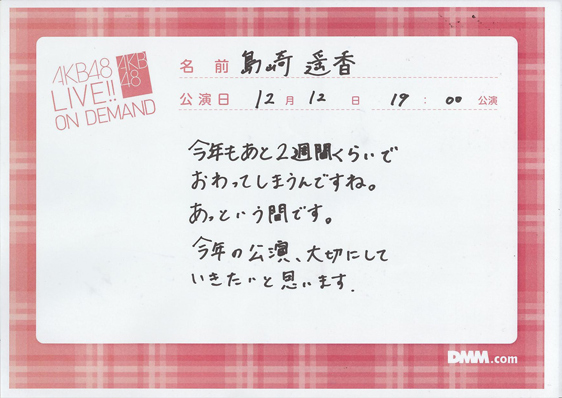 AKB48
LIVE!!
ON DEMAND
AKB
48
名前 島崎 遥香
公演日 12月12日 19:00公演
今年もあと2週間くらいで
おわってしまうんですね。
あっという間です。
今年の公演、大切にして
いきたいと思います.
DMM.com